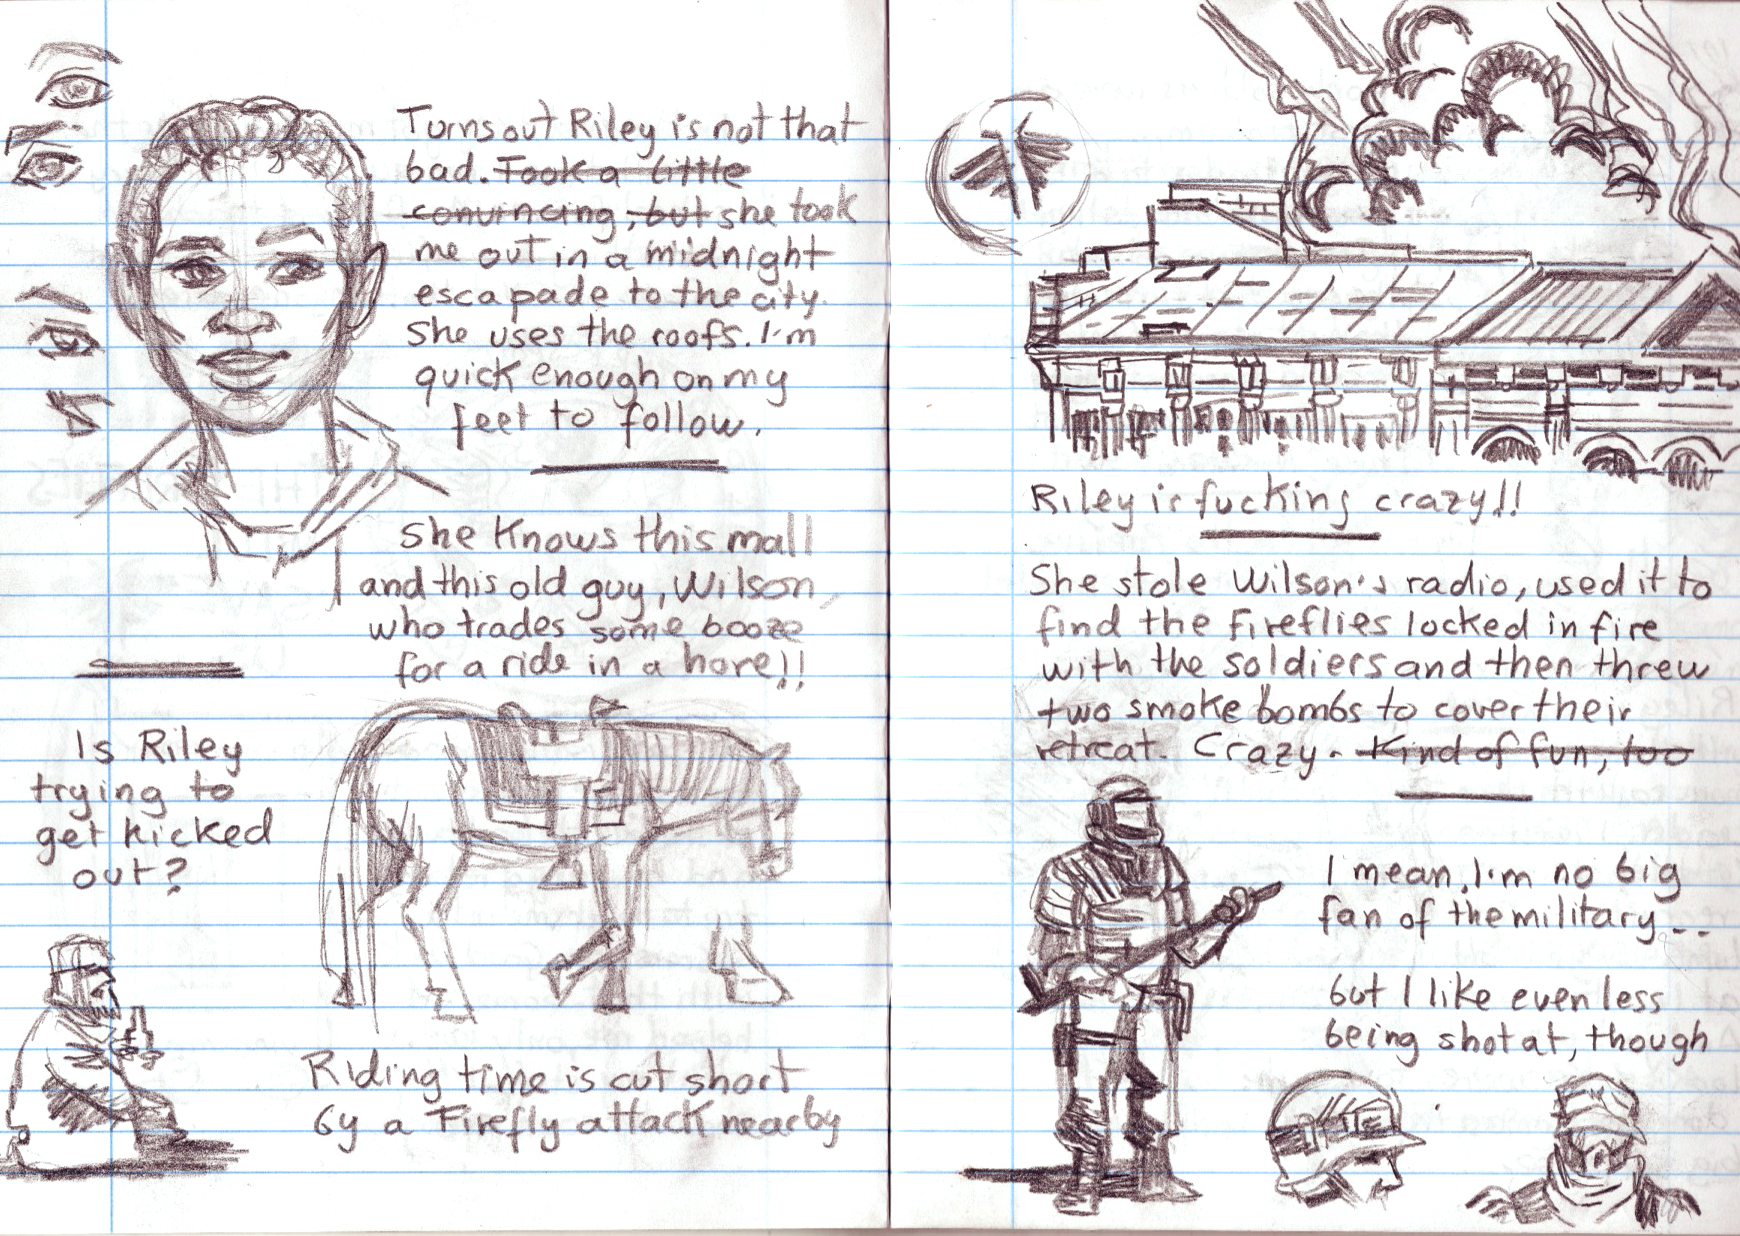 Turns out Riley is not that
bad. Took a little
convincing, but she took
me out in a midnight
escapade to the city.
She uses the roofs. I'm
quick enough on my
feet to follow.
She knows this mall
and this old guy, Wilson,
who trades some booze
for a ride in a hore!!
Is Riley
trying to
get kicked
out?
Riding time is cut short
by a Firefly attack nearby
Riley is fucking crazy!!
She stole Wilson's radio, used it to
find the Fireflies locked in fire
with the soldiers and then threw
two smoke bombs to cover their
retreat. Crazy. Kind of fun, too
I mean, I'm no big
fan of the military...
but I like even less
being shot at, though